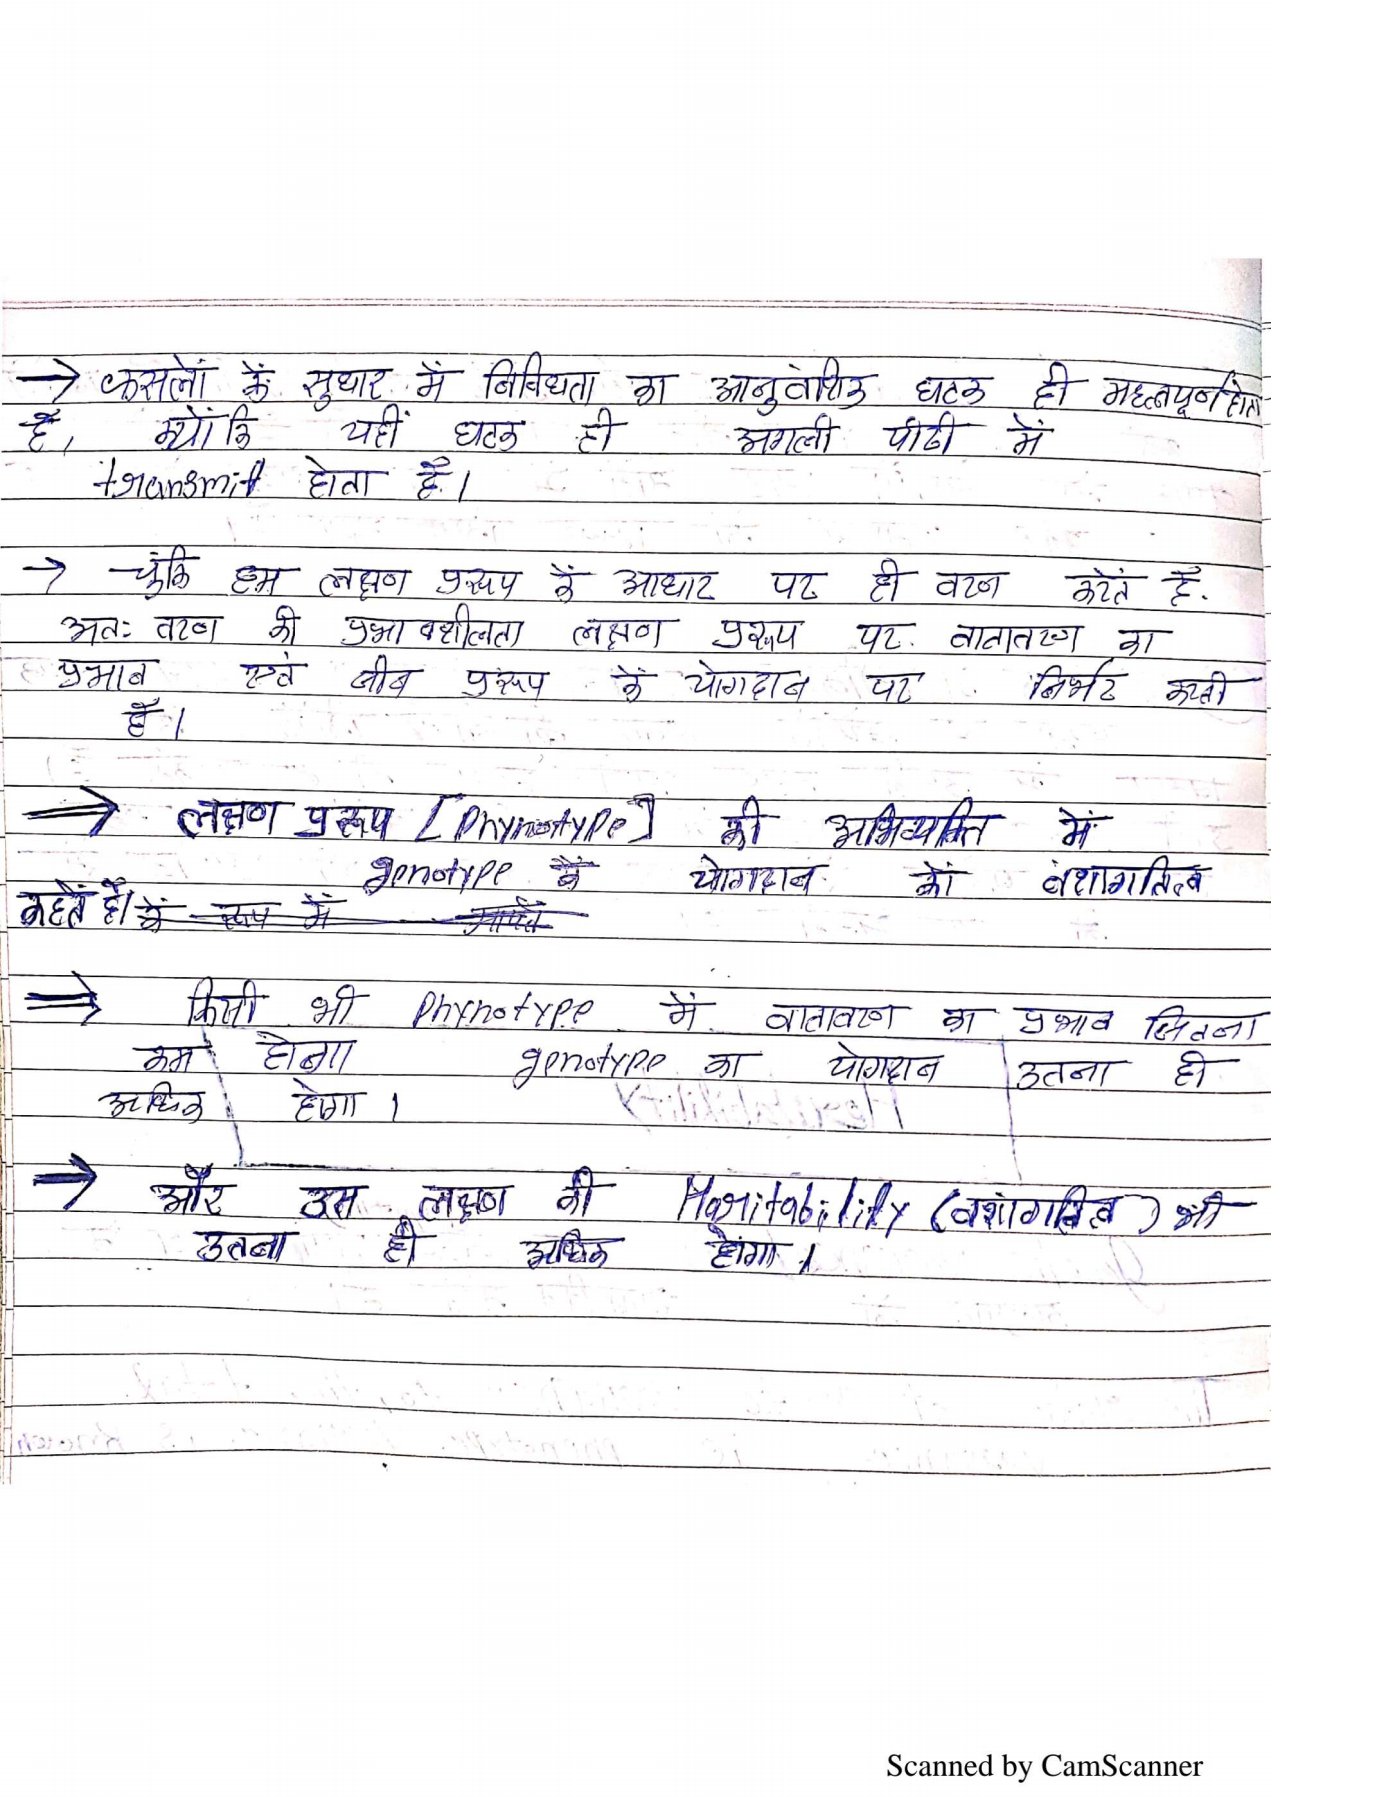 → फसलों के सुधार में विविधता का आनुवंशिक घटक ही महत्वपूर्ण होता
है, क्योंकि यहीं घटक ही अगली पीढी में
transmit होता है।
→ चूंकि हम लक्षण प्ररूप कें आधार पर ही वरण करतें है.
अतः वरण की प्रभावशीलता लक्षण प्ररूप पर वातावरण का
प्रभाव एवं जीव प्ररूप कें योगदान पर निर्भर करती
है।
⇒ लक्षण प्ररूप [Phynotype] की अभिव्यक्ति में
genotype कें योगदान कों वंशागतित्व
कहतें है। कें रूप में मापतें
⇒ किसी भी Phynotype में वातावरण का प्रभाव जितना
कम होगा genotype का योगदान उतना ही
अधिक होगा।
⇒ और उस लक्षण की Haritability (वशांगतित्व) भी
उतना ही अधिक होंगा।
Scanned by CamScanner